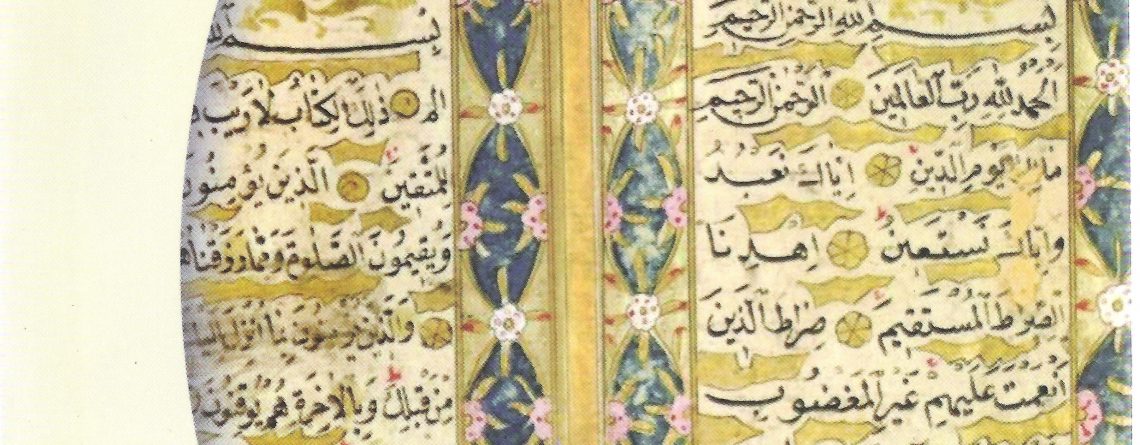 بِسْمِ اللهِ الرَّحْمٰنِ الرَّحِيمِ
اَلْحَمْدُ لِلّٰهِ رَبِّ الْعَالَمِينَ الرَّحْمٰنِ الرَّحِيمِ
مَالِكِ يَوْمِ الدِّينِ اِيَّاكَ نَعْبُدُ
وَاِيَّاكَ نَسْتَعِينُ اِهْدِنَا
الصِّرَاطَ الْمُسْتَقِيمَ صِرَاطَ الَّذِينَ
اَنْعَمْتَ عَلَيْهِمْ غَيْرِ الْمَغْضُوبِ
بِسْمِ
الم ذٰلِكَ الْكِتَابُ لَا رَيْبَ
لِلْمُتَّقِينَ اَلَّذِينَ يُؤْمِنُونَ
وَيُقِيمُونَ الصَّلٰوةَ وَمِمَّا رَزَقْنَاهُمْ
وَالَّذِينَ يُؤْمِنُونَ بِمَا اُنْزِلَ
مِنْ قَبْلِكَ وَبِالْاٰخِرَةِ هُمْ يُوقِنُونَ